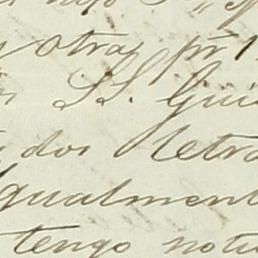 y otras pr 1
SS. Gui
dos letra
gualment
tengo noti